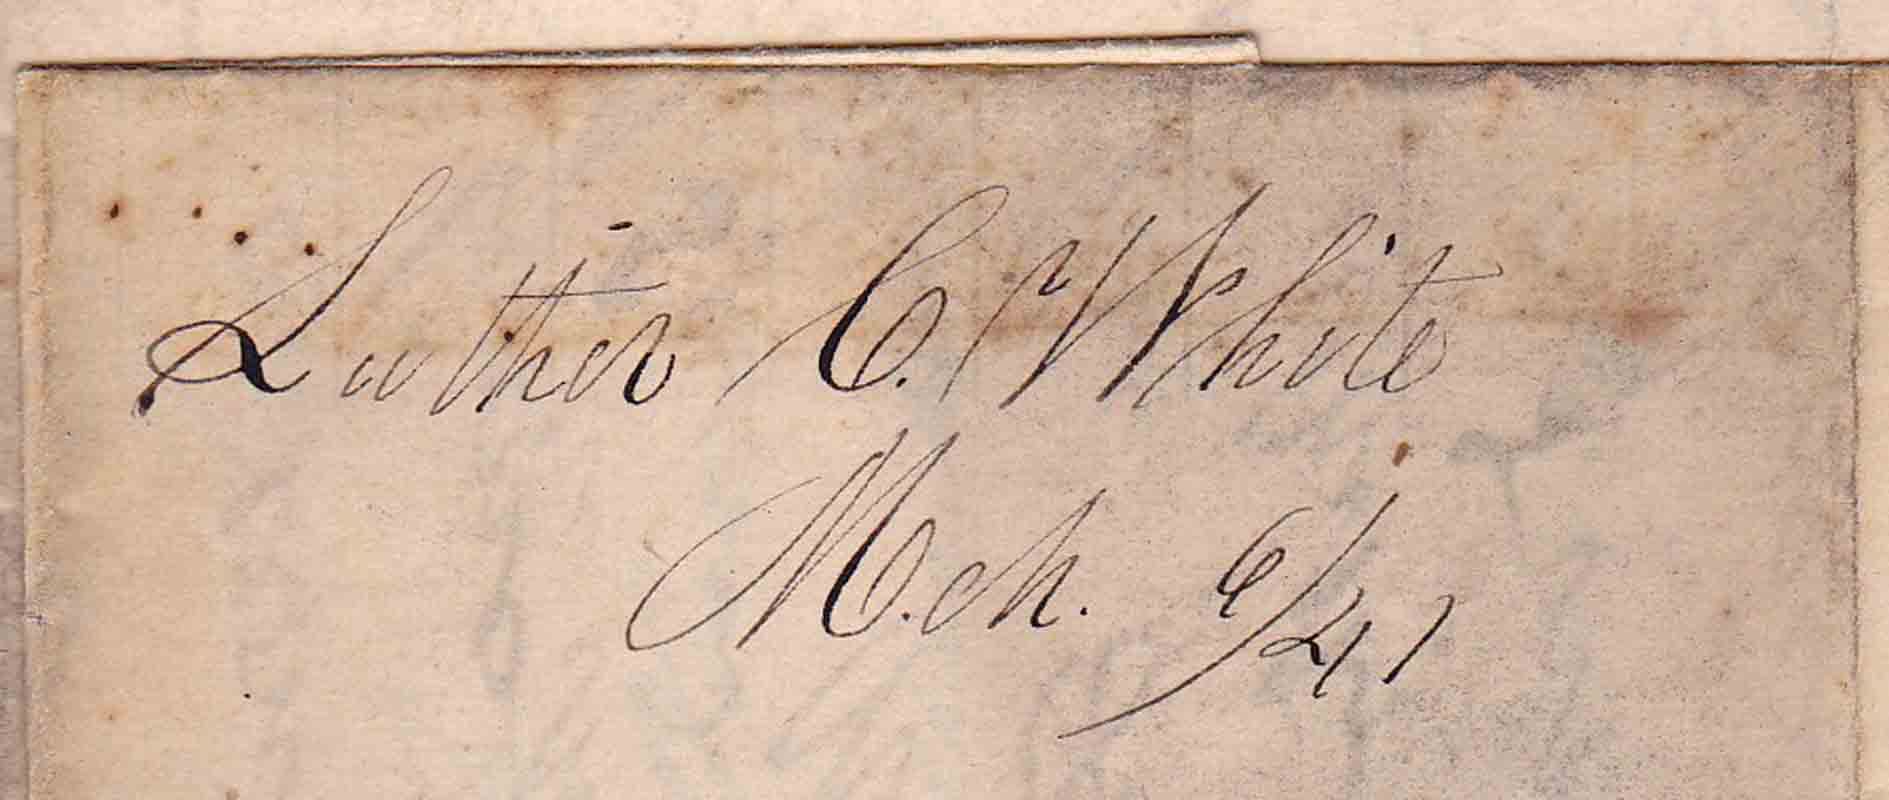 Luther C. White
Mch. 6/41